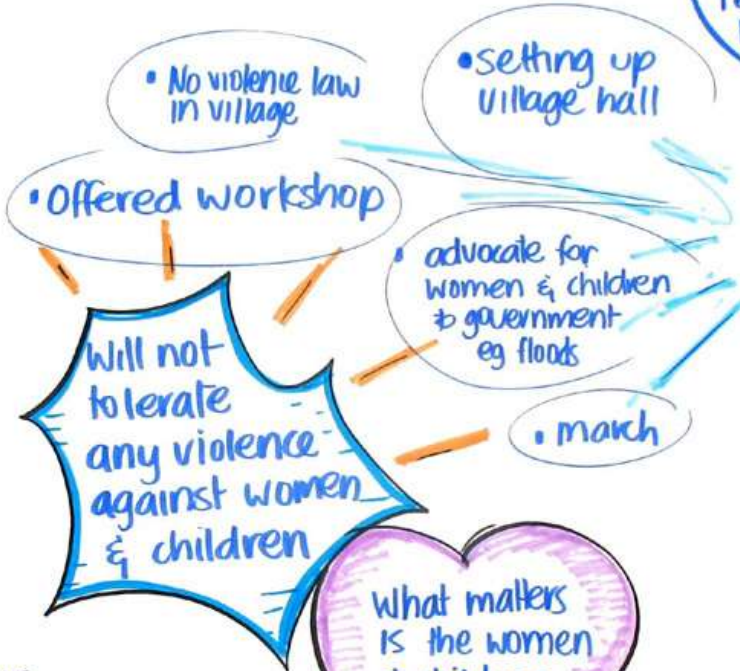 • No violence law
in village
• setting up
village hall
• offered workshop
• advocate for
women & children
to government
eg floods
• march
Will not
tolerate
any violence
against women
& children
What matters
is the women